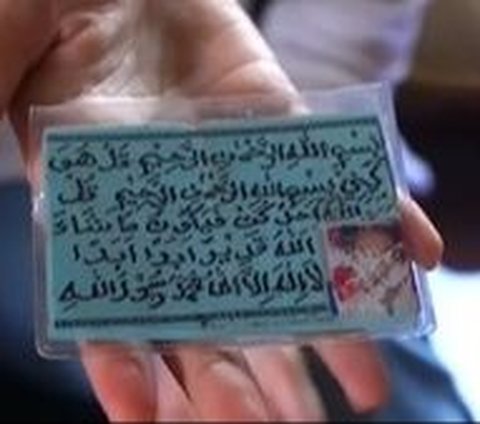 بسم الله الرحمن الرحيم قل هو
بسم الله الرحمن الرحيم قل
الله احد كن فيكون ما شاء
الله قدير ابدا ابدا
لا إله إلا الله محمد رسول الله